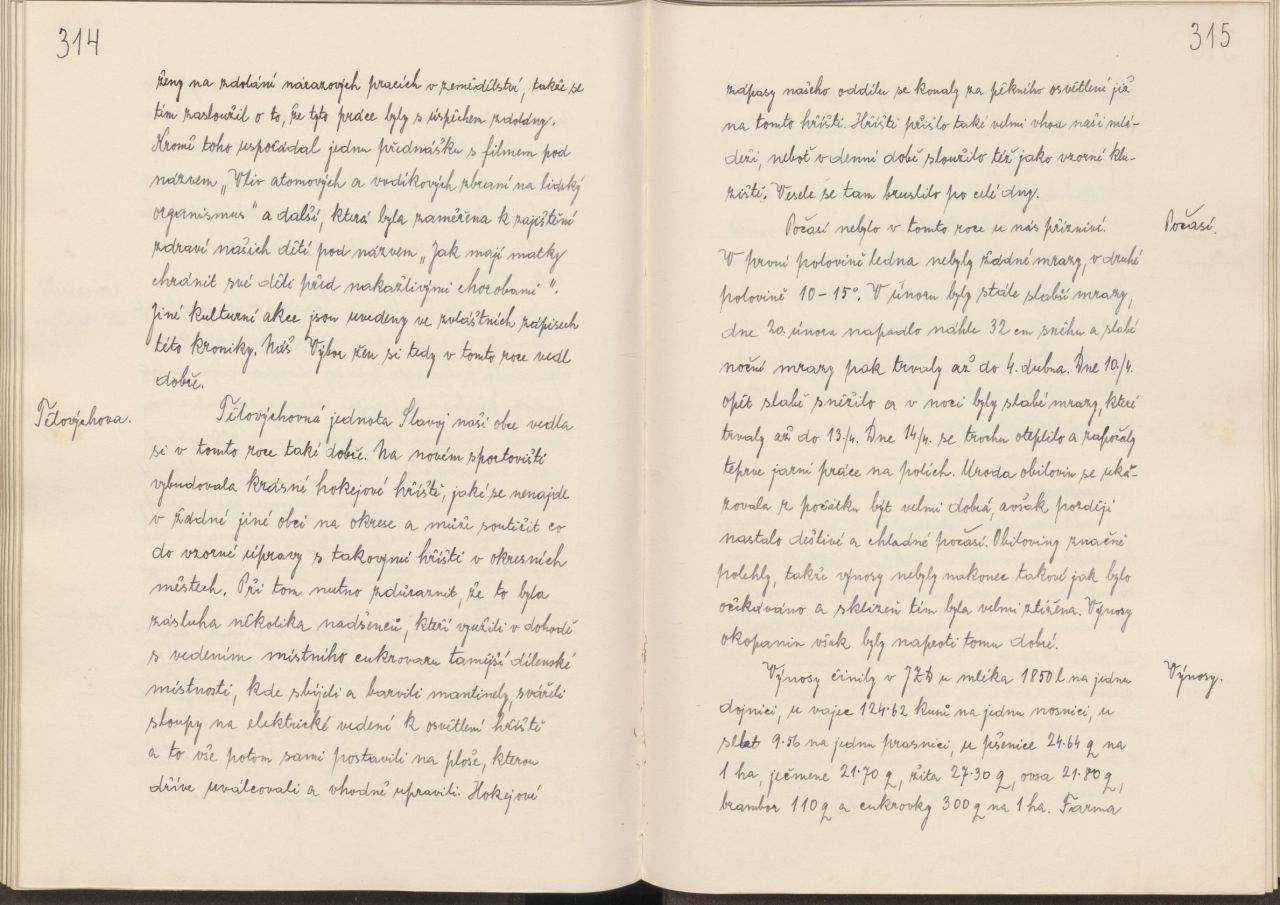 314
ženy na zdolání nárazových pracích v zemědělství, takže se
tím zasloužil o to, že tyto práce byly s úspěchem zdolány.
Kromě toho uspořádal jednu přednášku s filmem pod
názvem „Vliv atomových a vodíkových zbraní na lidský
organismus" a další, která byla zaměřena k zajištění
zdraví našich dětí pod názvem „Jak mají matky
chránit své děti před nakažlivými chorobami".
Jiné kulturní akce jsou uvedeny ve zvláštních zápisech
této kroniky. Náš Výbor žen si tedy v tomto roce vedl
dobře.
Tělovýchova.
Tělovýchovná jednota Slavoj naší obce vedla
si v tomto roce také dobře. Na novém sportovišti
vybudovala krásné hokejové hřiště, jaké se nenajde
v žádné jiné obci na okrese a může soutěžit co
do vzorné úpravy s takovými hřišti v okresních
městech. Při tom nutno zdůraznit, že to byla
zásluha několika nadšenců, kteří využili v dohodě
s vedením místního cukrovaru tamější dílenské
místnosti, kde sbíjeli a barvili mantinely, svářeli
sloupy na elektrické vedení k osvětlení hřiště
a to vše potom sami postavili na ploše, kterou
dříve uválcovali a vhodně upravili. Hokejové
315
zápasy našeho oddílu se konaly za pěkného osvětlení již
na tomto hřišti. Hřiště přišlo také velmi vhod naší mlá-
deži, neboť v denní době sloužilo též jako vzorné klu-
ziště. Vesele se tam bruslilo po celé dny.
Počasí.
Počasí nebylo v tomto roce u nás příznivé.
V první polovině ledna nebyly žádné mrazy, v druhé
polovině 10-15°. V únoru byly stále slabší mrazy,
dne 20. února napadlo náhle 32 cm sněhu a slabé
noční mrazy pak trvaly až do 4. dubna. Dne 10./4.
opět slabě sněžilo a v noci byly slabé mrazy, které
trvaly až do 13./4. Dne 14./4. se trochu oteplilo a započaly
teprve jarní práce na polích. Úroda obilovin se uká-
zovala z počátku být velmi dobrá, avšak později
nastalo deštivé a chladné počasí. Obiloviny značně
polehly, takže výnosy nebyly nakonec takové jak bylo
očekáváno a sklizeň tím byla velmi ztížena. Výnosy
okopanin však byly naproti tomu dobré.
Výnosy.
Výnosy činily v JZD u mléka 1850 l na jednu
dojnici, u vajec 124.62 kusů na jednu nosnici, u
selat 9.56 na jednu prasnici, u pšenice 24.64 q na
1 ha, ječmene 21.70 q, žita 27.30 q, ovsa 21.80 q,
brambor 110 q a cukrovky 300 q na 1 ha. Farma